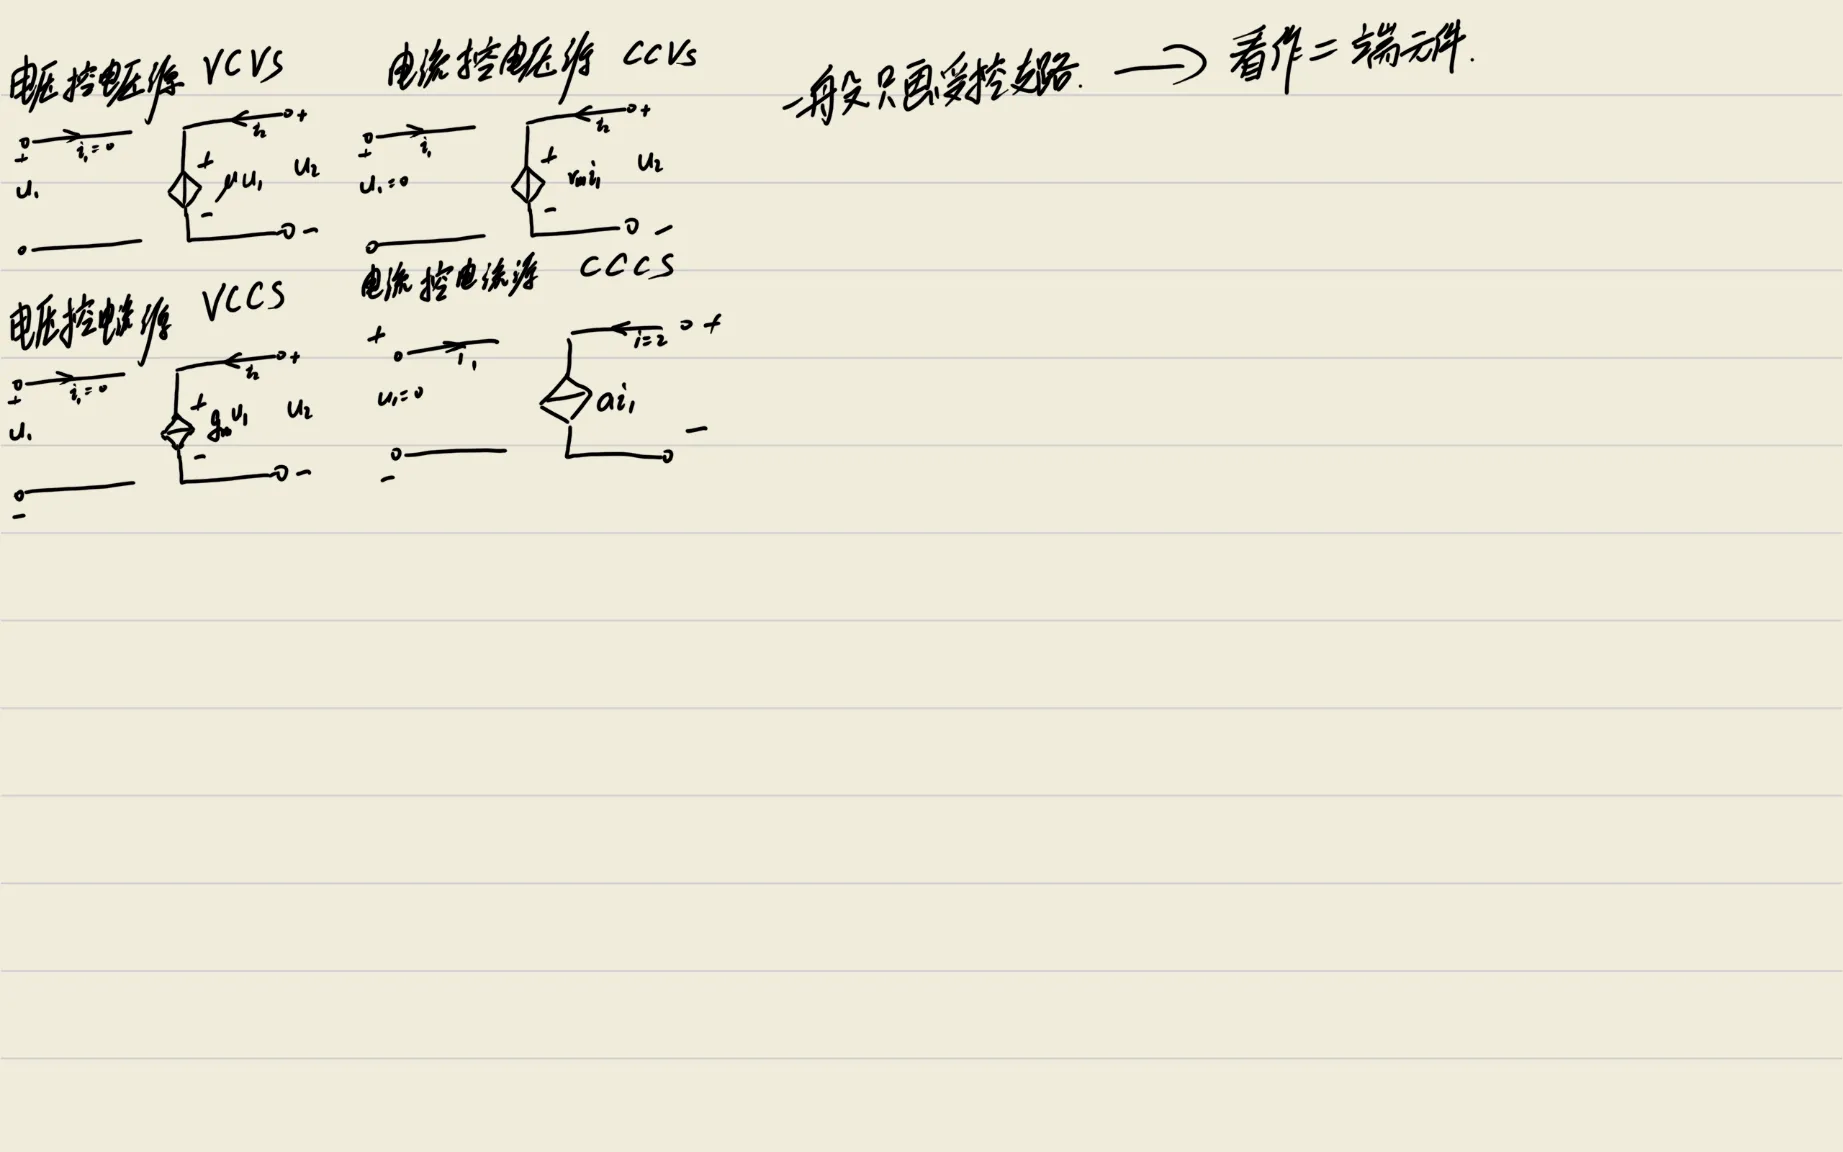 电压控电压源 VCVS
i₁=0
+
u₁
i₂ +
+
μu₁ u₂
-
-
电流控电压源 CCVS
i₁
+
u₁=0
i₂ +
+
rₘi₁ u₂
-
-
一般只画受控支路. → 看作二端元件.
电压控电流源 VCCS
i₁=0
+
u₁
-
i₂ +
+
gₘu₁ u₂
-
-
电流控电流源 CCCS
+
i₁
u₁=0
-
i=2 +
ai₁
-